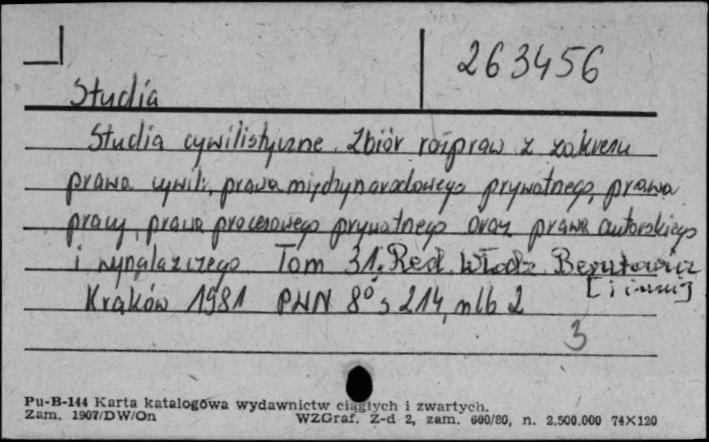 263456
Studia
Studia cywilistyczne. Zbiór rozpraw z zakresu
prawa cywil., prawa międzynarodowego prywatnego, prawa
pracy, prawa procesowego prywatnego oraz prawa autorskiego
i wynalazczego Tom 31. Red. Włodz. Berutowicz
[i inni]
Kraków 1981 PWN 8° s 214, nlb 2
3
Pu-B-144 Karta katalogowa wydawnictw ciągłych i zwartych.
Zam. 1907/DW/On WZGraf. Z-d 2, zam. 660/80, n. 2.500.000 74X120